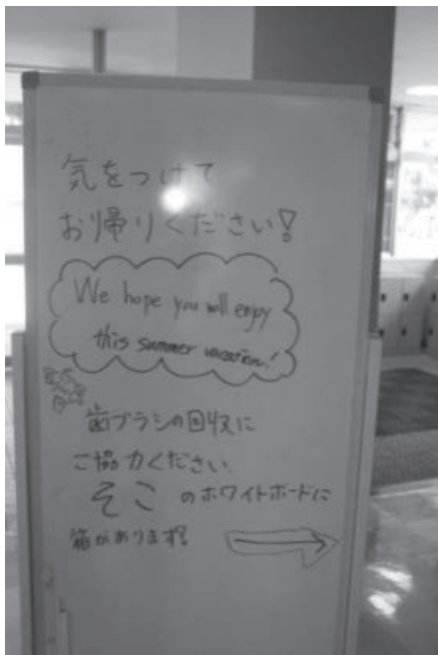 気をつけて
お帰りください!
We hope you will enjoy
this summer vacation!
歯ブラシの回収に
ご協力ください.
そこ のホワイトボードに
箱があります!